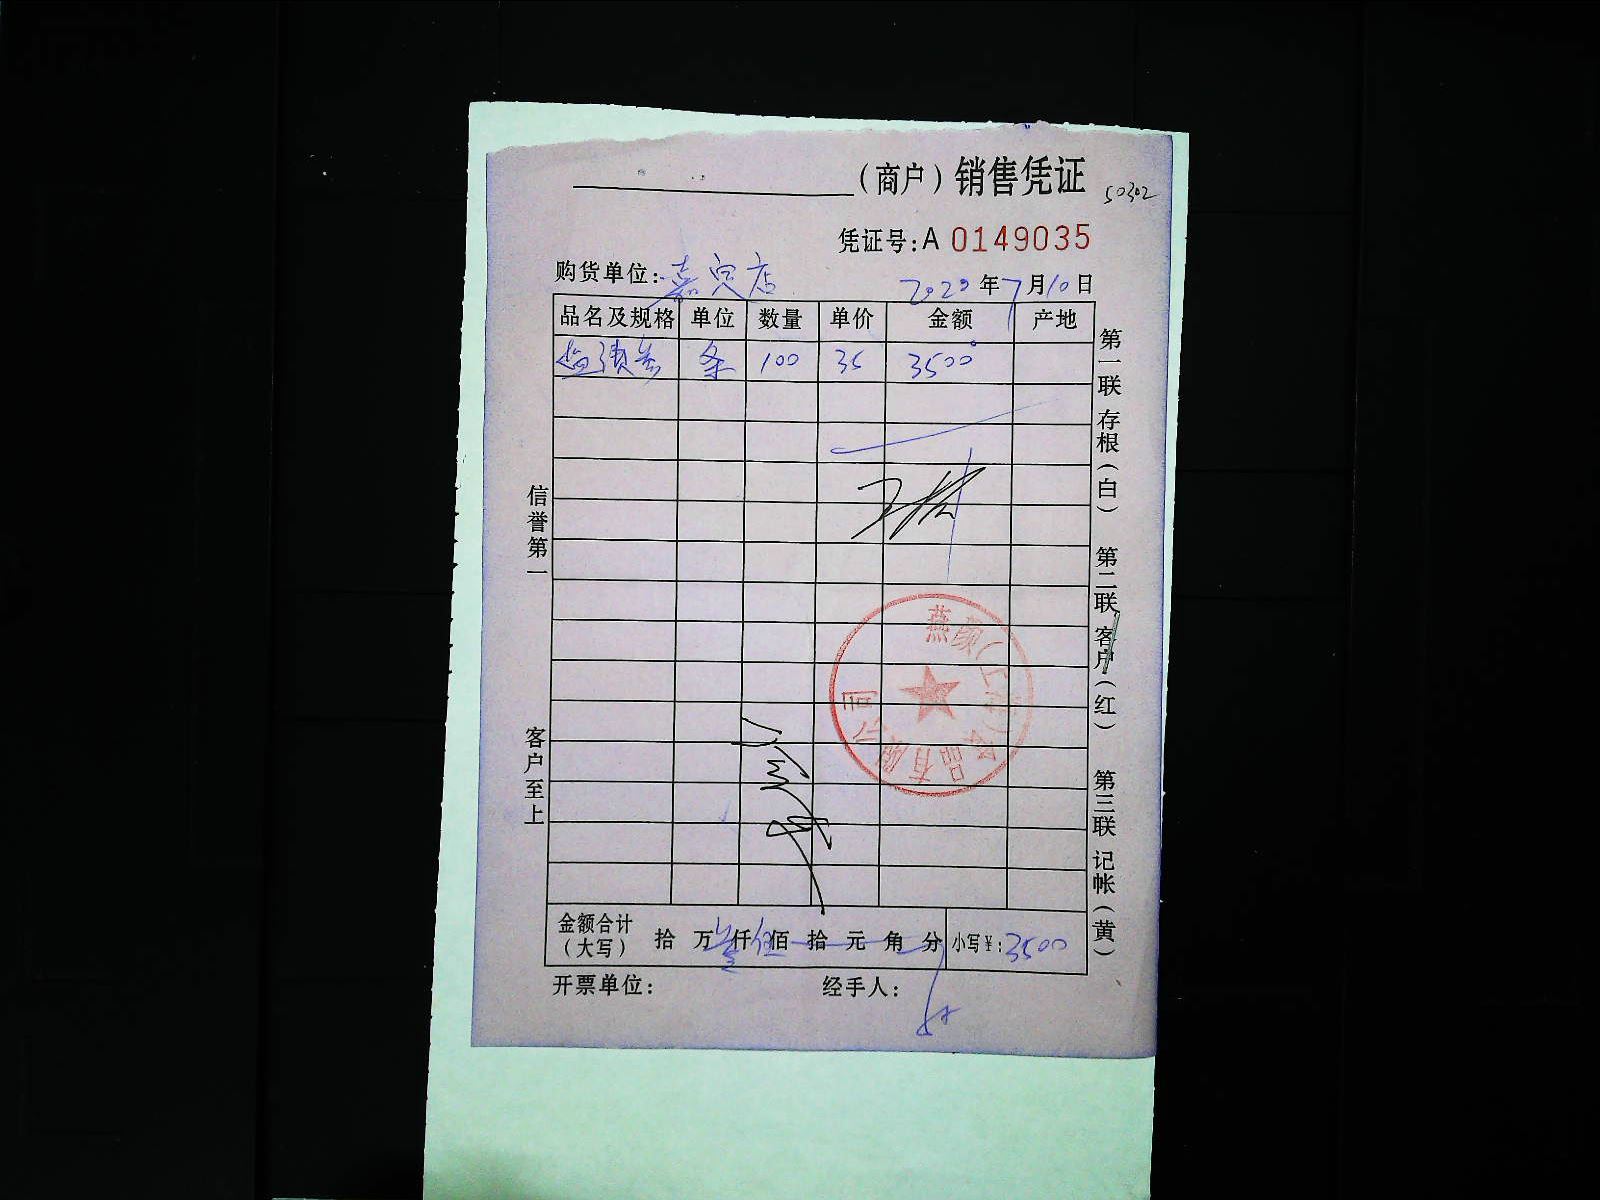 （商户）销售凭证
50302
凭证号：A 0149035
购货单位：嘉定店 2020年7月10日
品名及规格 单位 数量 单价 金额 产地
条 100 35 3500
第一联 存根（白） 第二联 客户（红） 第三联 记帐（黄）
信誉第一 客户至上
燕颜（上海）品有限公司
金额合计（大写） 拾 万叁仟伍佰 拾 元 角 分 小写¥：3500
开票单位： 经手人：